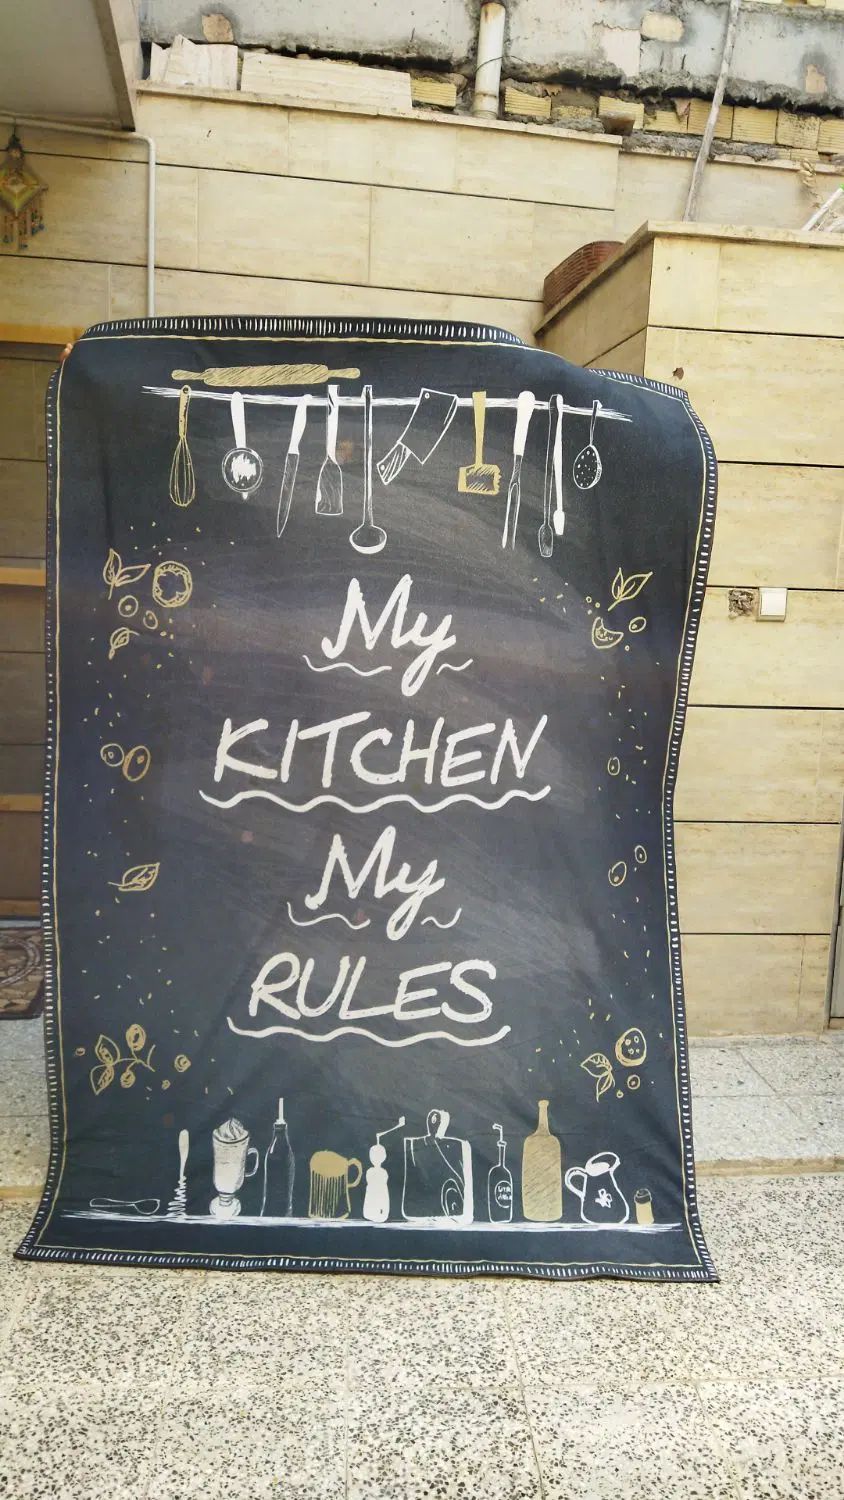 My
KITCHEN
My
RULES